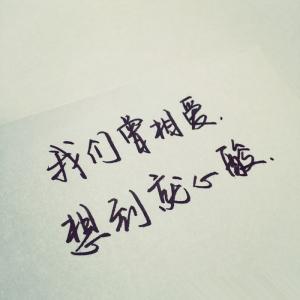 我们曾相爱.
想到就心酸.